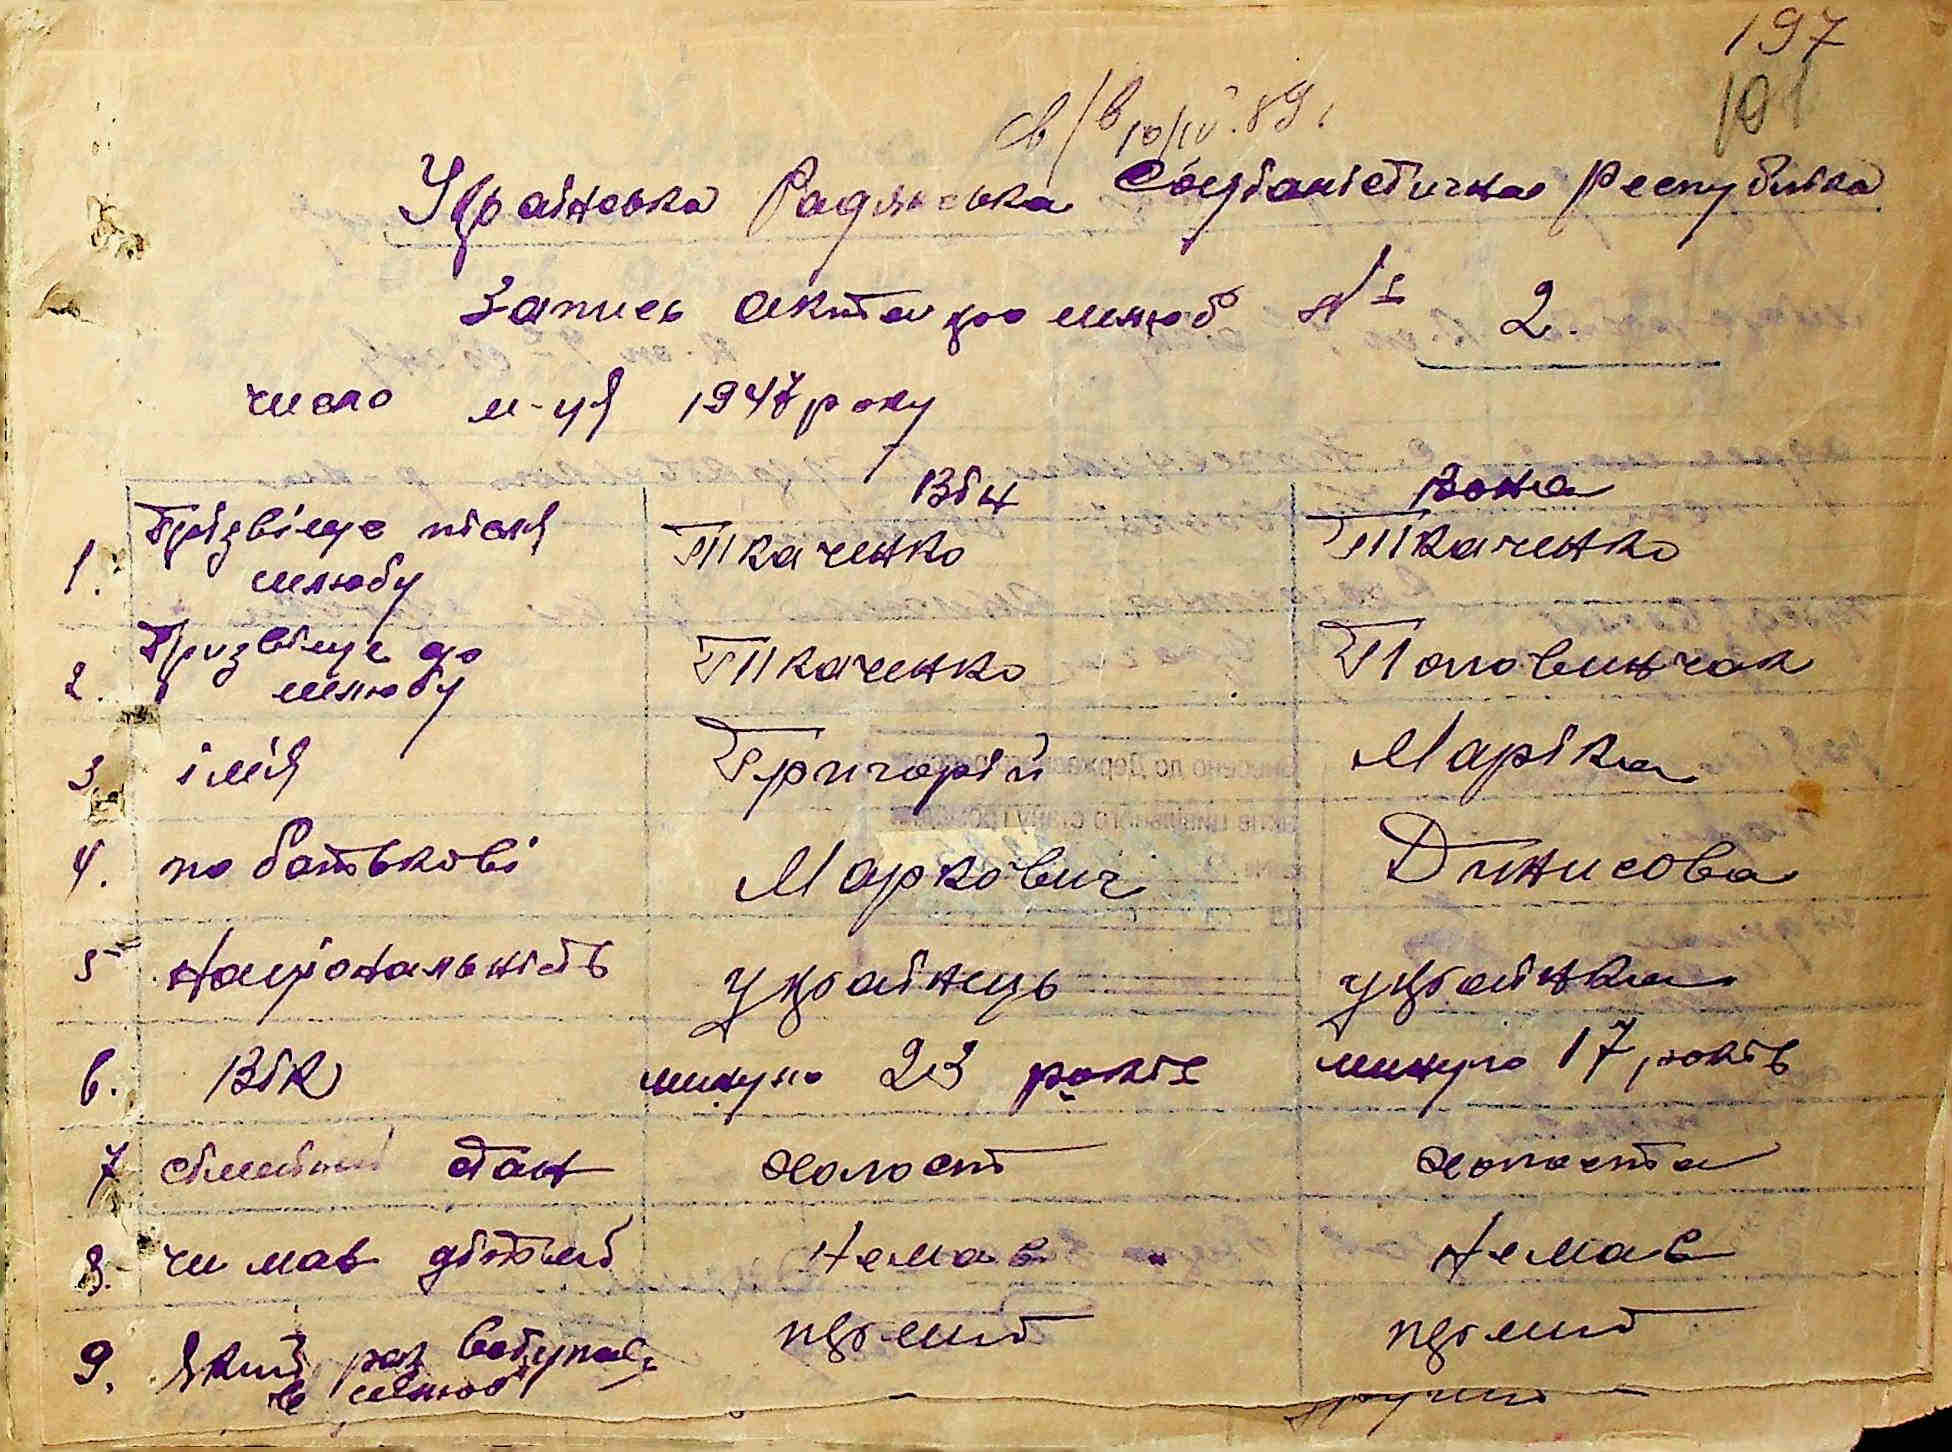 197
101
св/в 10/IV.89г
Українська Радянська Соціалістична Республіка
Запись акта про шлюб № 2.
число м-ця 1947 року
Він Вона
1. Прізвіще після шлюбу Ткаченко Ткаченко
2. Призвіще до шлюбу Ткаченко Половинчак
3 імія Григорій Маріка
4. по батькові Маркович Динисова
5 Національність українець українка
6. Вік минуло 23 років минуло 17 років
7 сімейний стан холост холоста
8. чи мав дітей Немав Немав
9. Який раз вступає в шлюб первий первий